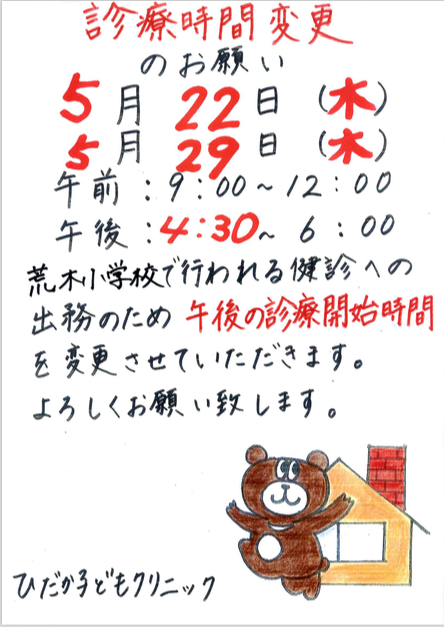 診療時間変更
のお願い
5月 22日 (木)
5月 29日 (木)
午前:9:00~12:00
午後:4:30~ 6:00
荒木小学校で行われる健診への
出務のため 午後の診療開始時間
を変更させていただきます。
よろしくお願い致します。
ひだか子どもクリニック